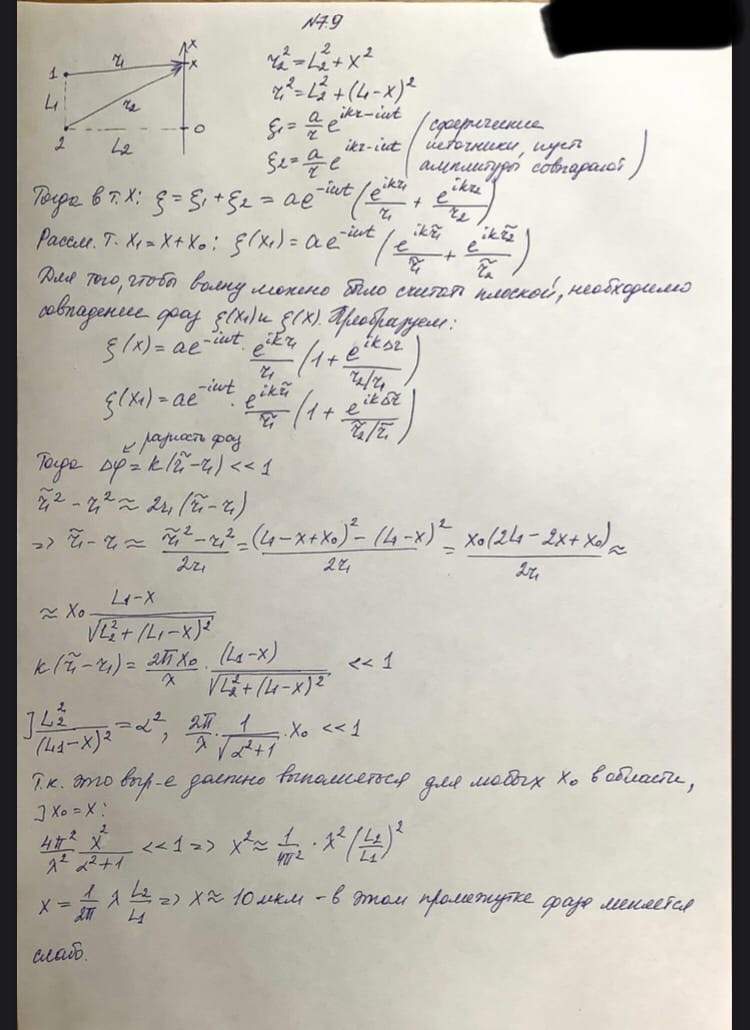 №7.9
x
1 r₁ x
L₁ r₂
2 L₂ 0
r₂² = L₂² + x²
r₁² = L₂² + (L₁-x)²
ξ₁ = a/r e^{ikr-iωt} (сферические
ξ₂ = a/r e^{ikr-iωt} источники, пусть
амплитуды совпадают)
Тогда в т. x: ξ = ξ₁ + ξ₂ = ae^{-iωt} (e^{ikr₁}/r₁ + e^{ikr₂}/r₂)
Рассм. т. x₁ = x + x₀: ξ(x₁) = ae^{-iωt} (e^{ikr̃₁}/r̃₁ + e^{ikr̃₂}/r̃₂)
Для того, чтобы волну можно было считать плоской, необходимо
совпадение фаз ξ(x₁) и ξ(x). Преобразуем:
ξ(x) = ae^{-iωt} · e^{ikr₁}/r₁ (1 + e^{ikΔr}/(r₂/r₁))
ξ(x₁) = ae^{-iωt} · e^{ikr̃₁}/r̃₁ (1 + e^{ikΔr̃}/(r̃₂/r̃₁))
разность фаз
Тогда Δφ = k(r̃₁ - r₁) << 1
r̃₁² - r₁² ≈ 2r₁(r̃₁ - r₁)
=> r̃₁ - r₁ ≈ (r̃₁² - r₁²)/2r₁ = ((L₁-x+x₀)² - (L₁-x)²)/2r₁ = x₀(2L₁-2x+x₀)/2r₁ ≈
≈ x₀ (L₁-x)/√(L₂²+(L₁-x)²)
k(r̃₁-r₁) = 2πx₀/λ · (L₁-x)/√(L₂²+(L₁-x)²) << 1
] L₂²/(L₁-x)² = α², 2π/λ · 1/√(α²+1) · x₀ << 1
Т.к. это выр-е должно выполняться для любых x₀ в области,
] x₀ = x:
4π²/λ² x²/(α²+1) << 1 => x² ≈ 1/4π² · λ² (L₂/L₁)²
x = 1/2π λ L₂/L₁ => x ≈ 10 мкм - в этом промежутке фаза меняется
слабо.